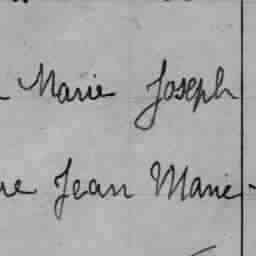 Marie Joseph
Jean Marie -